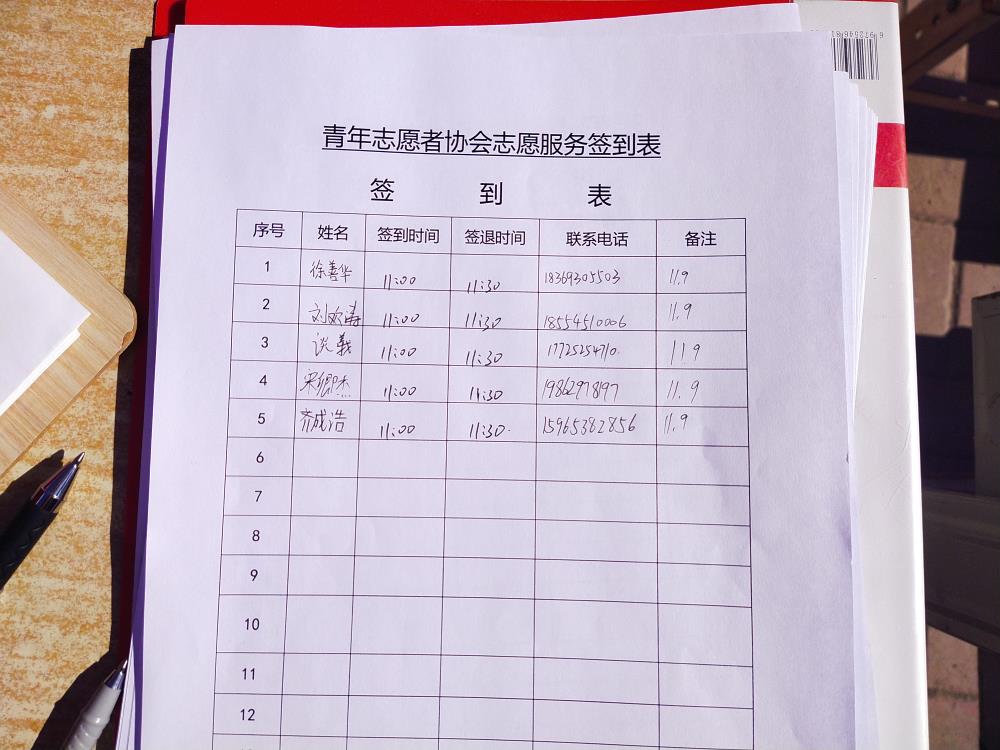 青年志愿者协会志愿服务签到表
签 到 表
序号 姓名 签到时间 签退时间 联系电话 备注
1 徐善华 11:00 11:30 18369305503 11.9
2 刘欢涛 11:00 11:30 18554510006 11.9
3 谈義 11:00 11:30 17725254710. 119
4 宋卿杰 11:00 11:30 19862978197 11.9
5 齐成浩 11:00 11:30. 15965382856 11.9
6
7
8
9
10
11
12